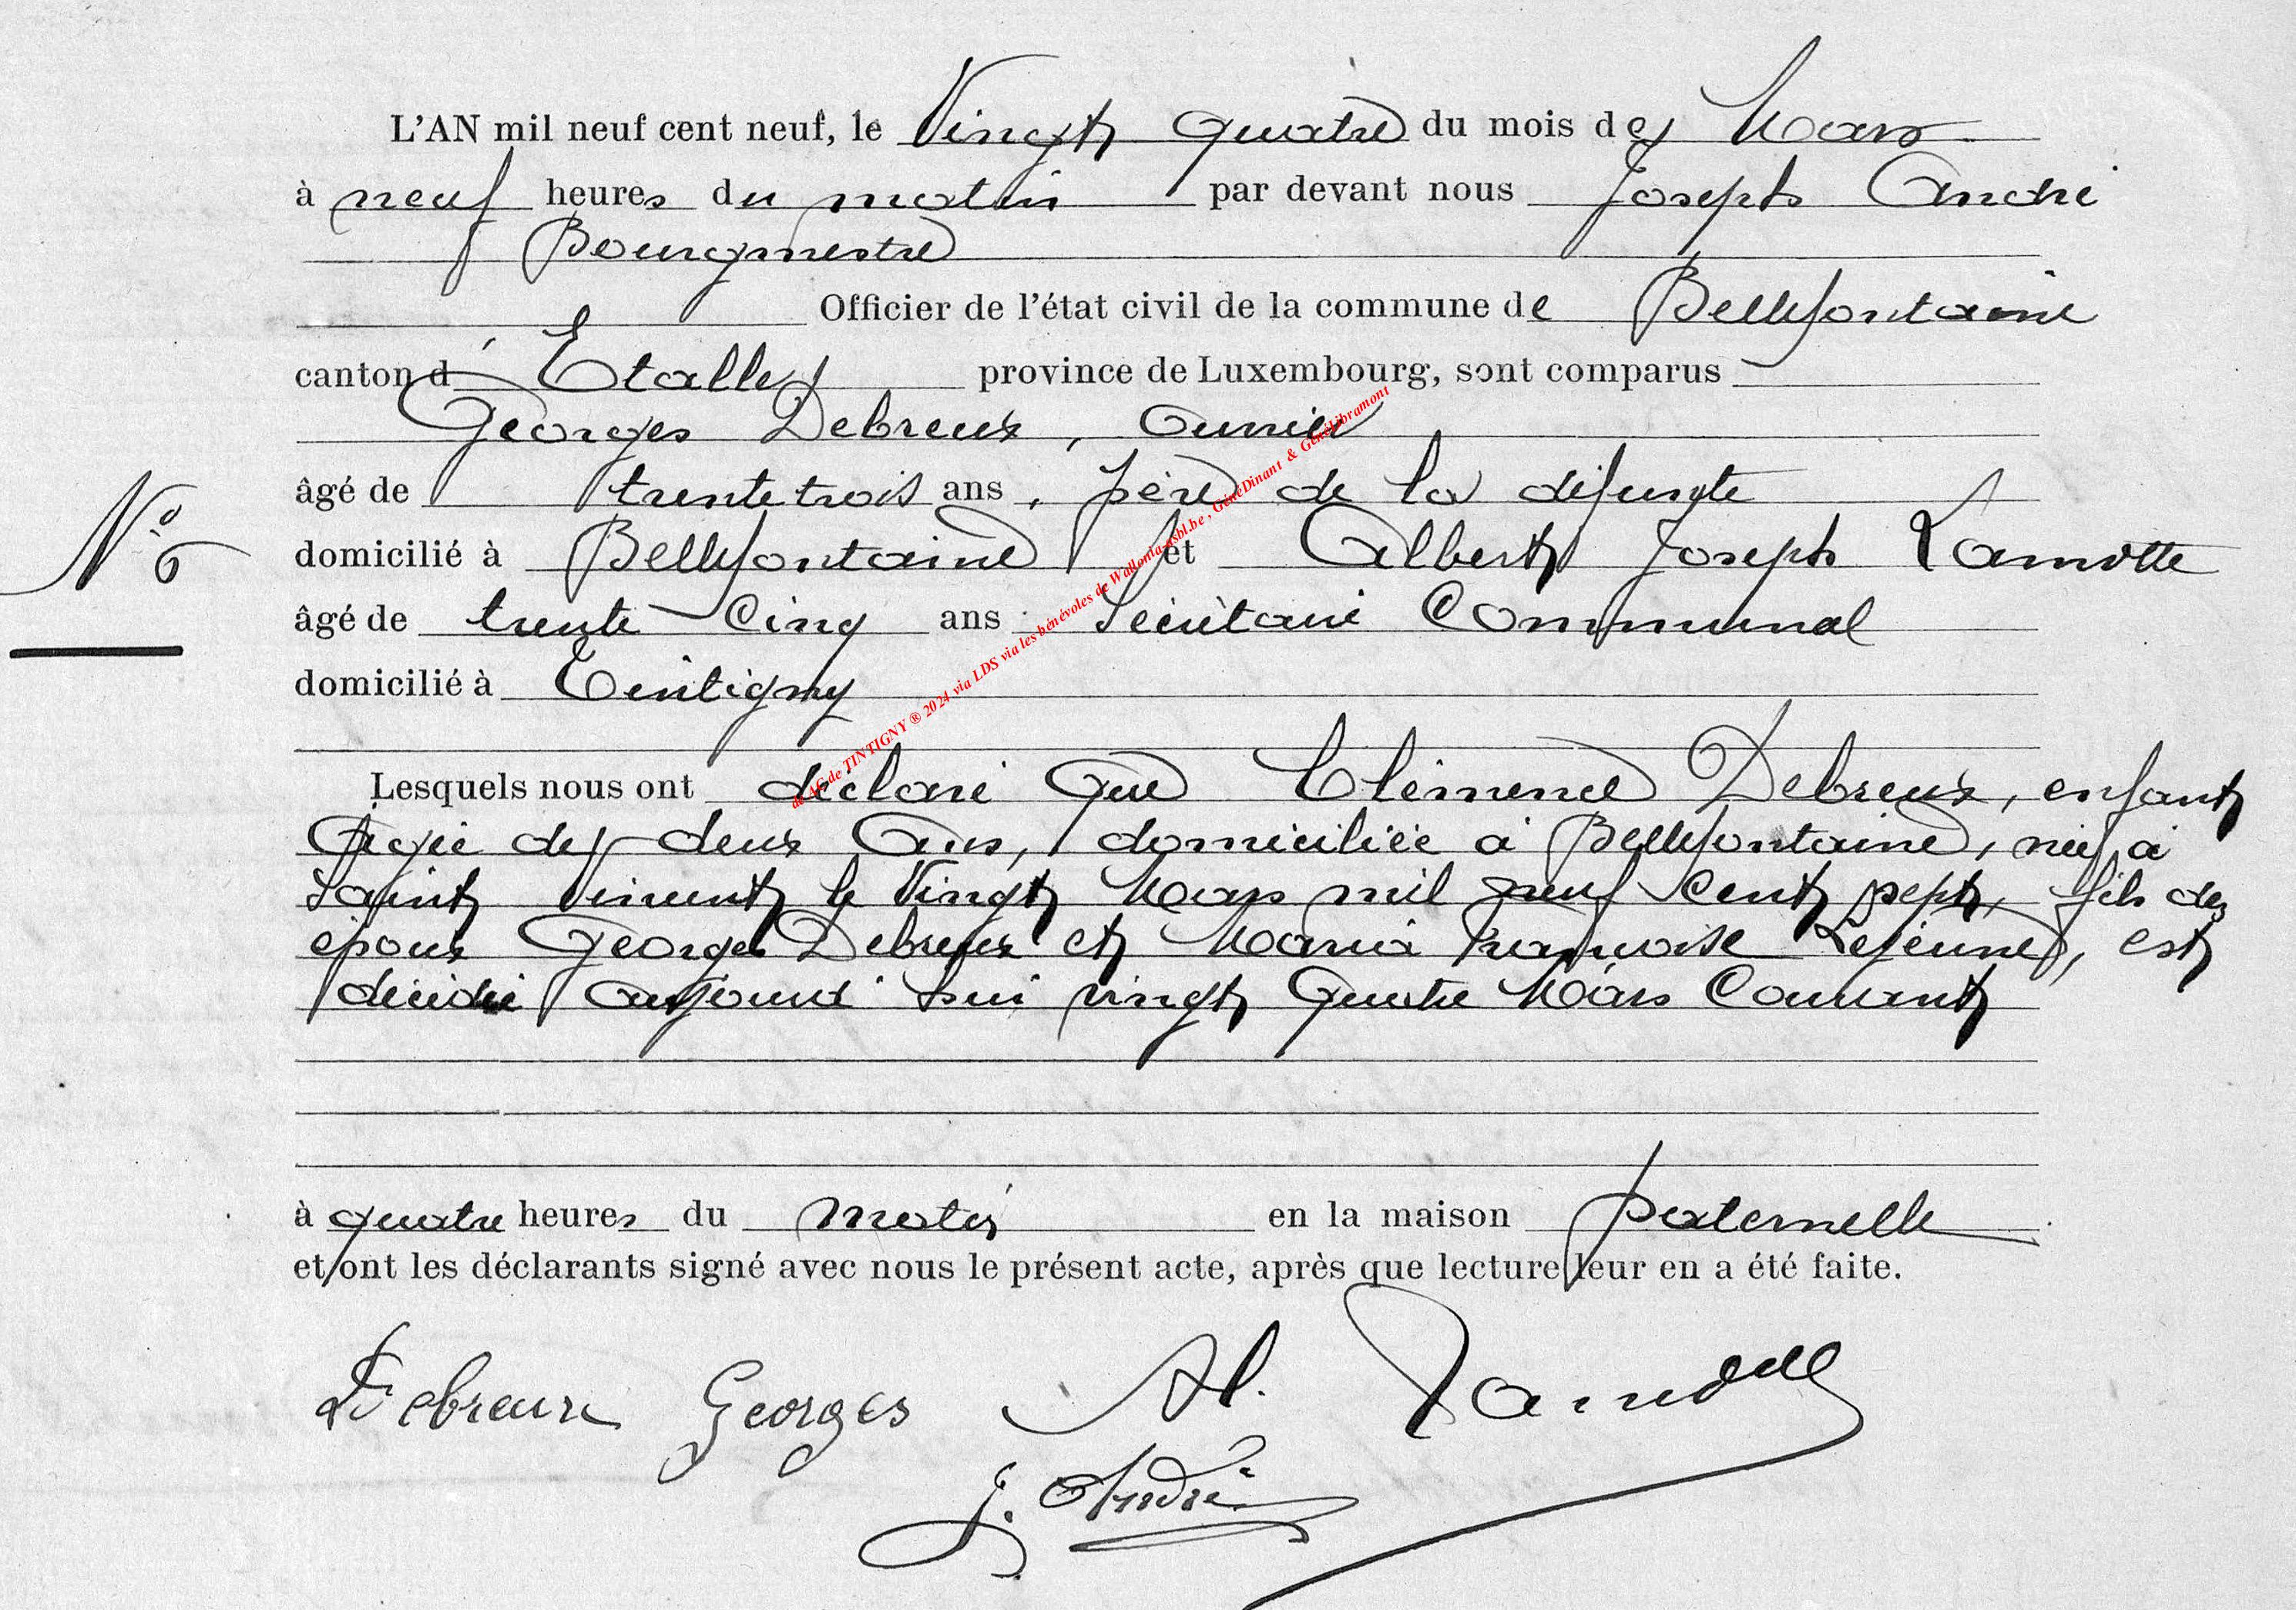 L'AN mil neuf cent neuf, le Vingt quatre du mois de Mars
à neuf heures du matin par devant nous Joseph André
Bourgmestre
Officier de l'état civil de la commune de Bellefontaine
canton d'Etalle province de Luxembourg, sont comparus
Georges Debreux, ouvrier
âgé de trente trois ans, père de la défunte
N° 6
domicilié à Bellefontaine et Albert Joseph Lamotte
âgé de trente cinq ans Secrétaire Communal
domicilié à Tintigny
Lesquels nous ont déclaré que Clémence Debreux, enfant
âgée de deux ans, domiciliée à Bellefontaine, née à
Saint Vincent le Vingt Mars mil neuf cent sept, fils des
époux Georges Debreux et Maria Françoise Lejeune, est
décédée aujourd'hui vingt quatre Mars Courant
à quatre heures du matin en la maison paternelle
et ont les déclarants signé avec nous le présent acte, après que lecture leur en a été faite.
Debreux Georges Al. Lamotte
J. André
de AC de TINTIGNY ® 2024 via LDS via les bénévoles de Wallonia-asbl.be, GénéDinant & GénéLibramont